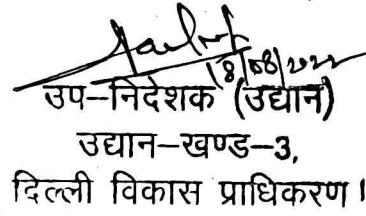 18/08/2022
उप–निदेशक (उद्यान)
उद्यान–खण्ड–3,
दिल्ली विकास प्राधिकरण।